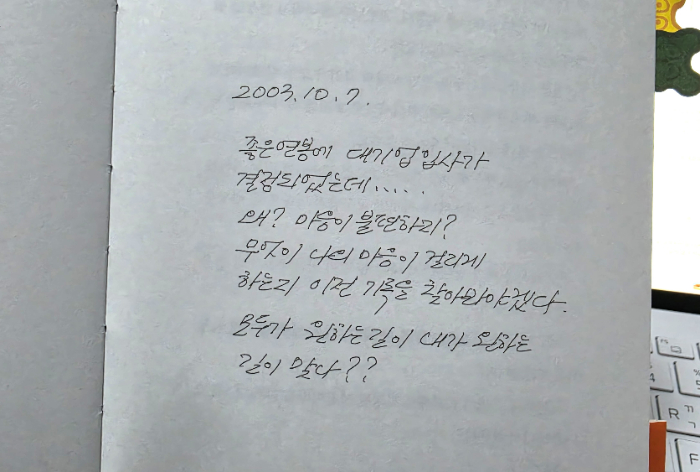 2003.10.7.
좋은연봉에 대기업입사가
결정되었는데.....
왜? 마음이 불편하리?
무엇이 나의 마음이 걸리게
하는지 이전 기록을 찾아봐야겠다.
모두가 원하는길이 내가 원하는
길이 맞다??
R ㄲ
ㄱ
F